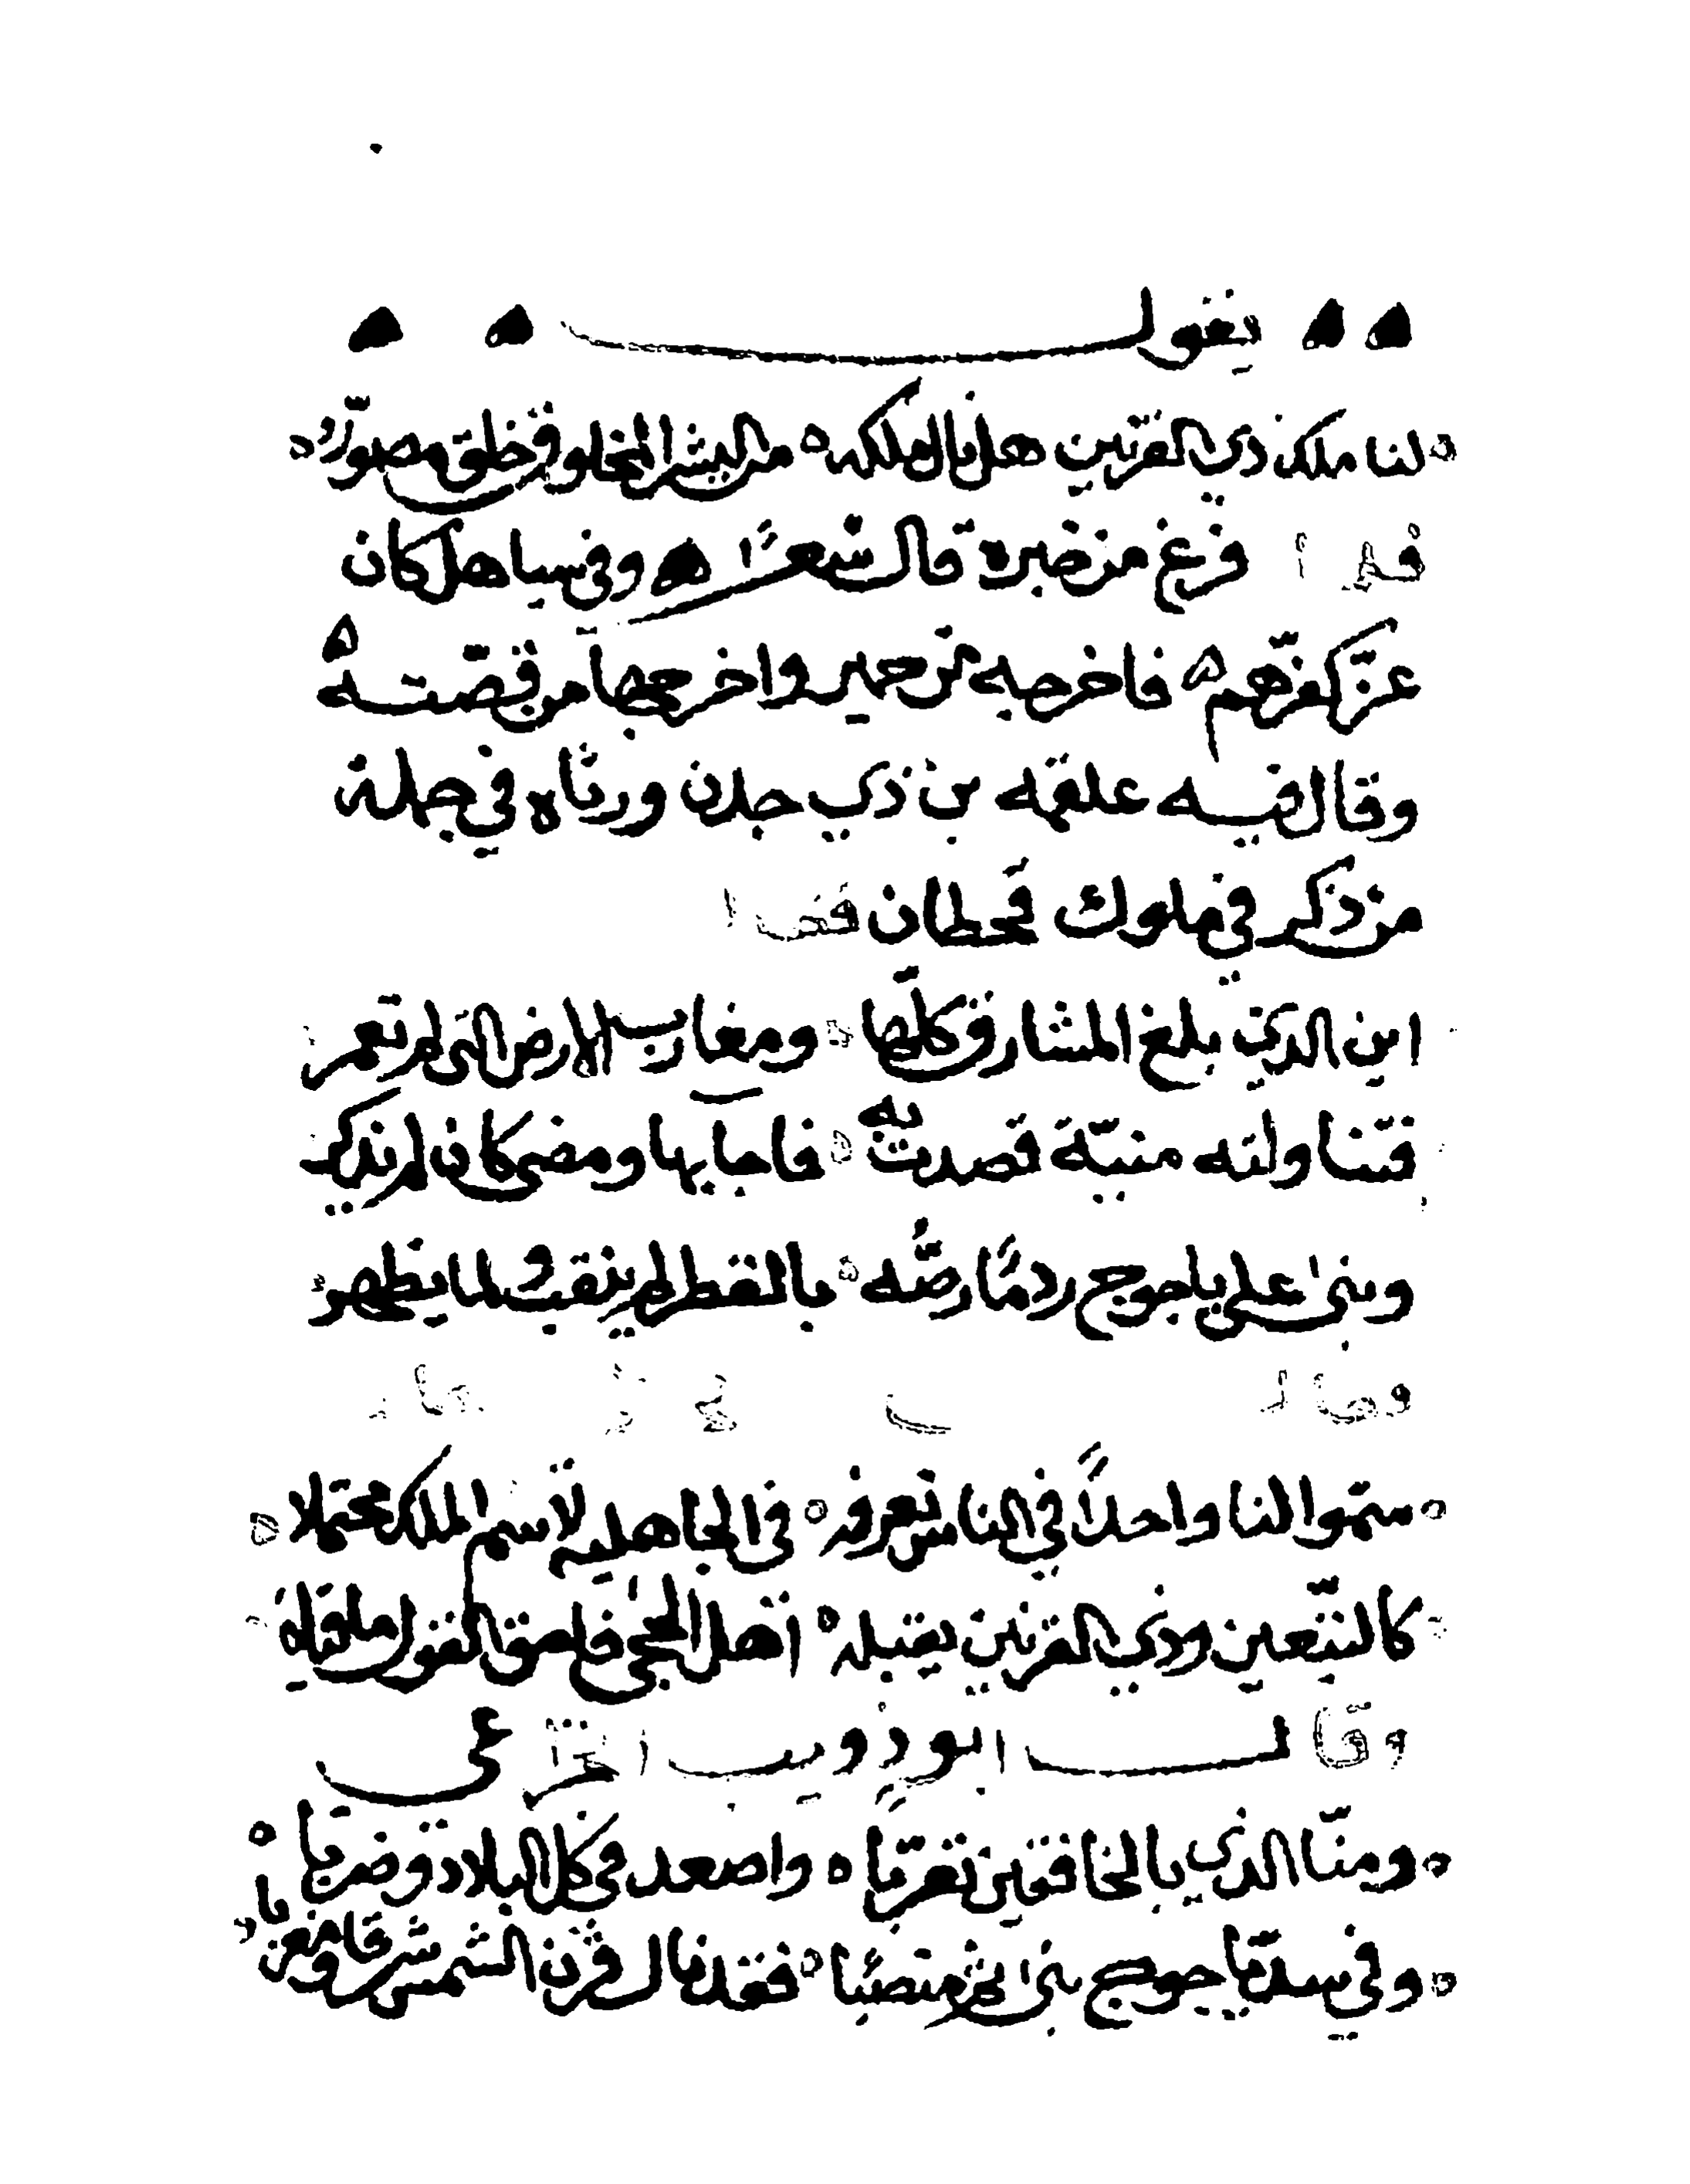 يقول
لنا ملك ذي القرنين هل نال ملكه من البشر المخلوق خلق مصوّر
فلما فرغ من خبره قال شعرًا وفي سبا هل كان
عزّ كعزّهم فاخرجه من حمير واخرجها من قصته
وقال فيه علقمه بن ذي جدن ورثاه في جملة
من ذكر في ملوك قحطان فقال
اين الذي بلغ المشارق كلّها ومغارب الارض التي لم تعمر
فتناولته منيّة قصدت به فاجابها ومضى كان لم يذكر
وبنى على ياجوج ردمًا رصّه بالقطر لم ينقب ولما يظهر
وقال
سمّوا لنا واحدًا في الناس نعرفه في الجاهليه لاسم الملك محتملا
كالتبّعين وذي القرنين يقبله اهل الحجى فاصدق القول ما قيلا
وقال ابو ذويب الخزاعي
ومنّا الذي بالخافقين تغرّبا واصعد في كل البلاد وصوّبا
وفي سد ياجوج بنى ثم منصبا فقد نال قرن الشمس شرقا ومغربا